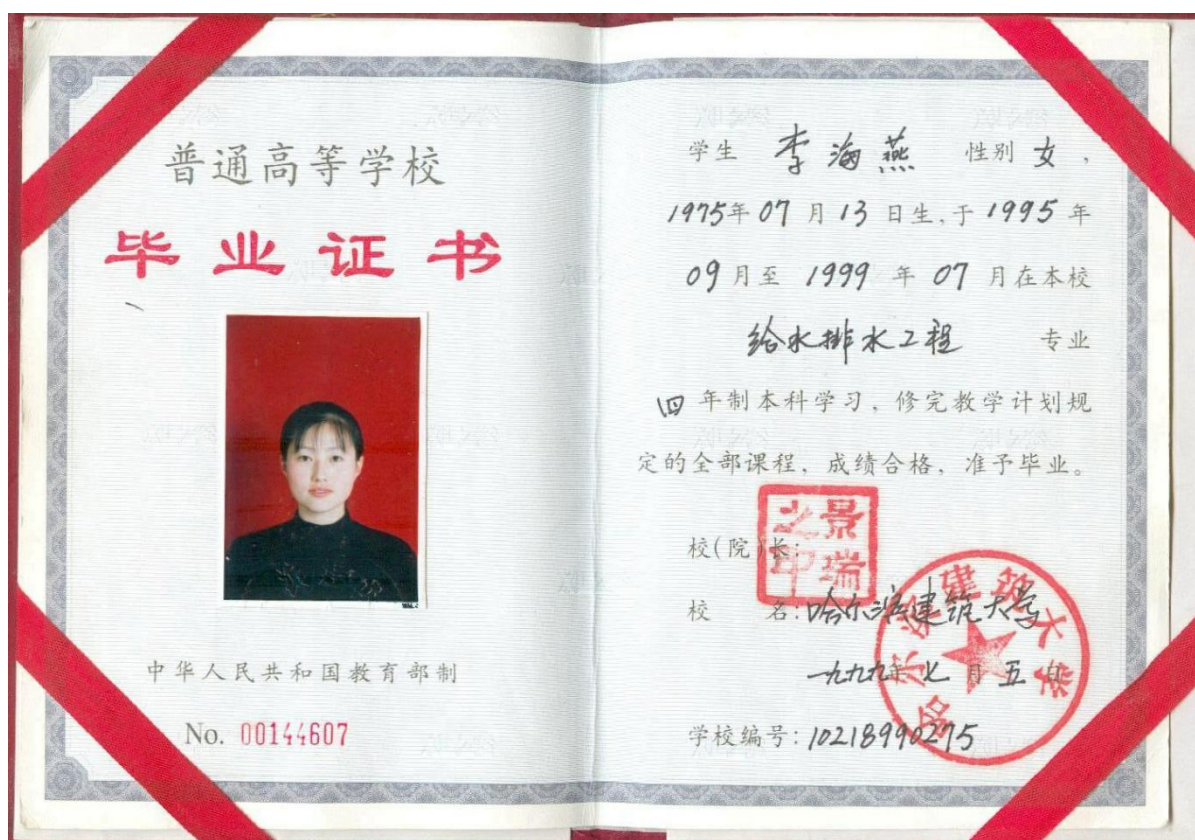 普通高等学校
毕业证书
中华人民共和国教育部制
No. 00144607
学生 李海燕 性别 女,
1975年07月13日生,于1995年
09月至1999年07月在本校
给水排水工程 专业
四年制本科学习,修完教学计划规
定的全部课程,成绩合格,准予毕业。
校(院)长:
景瑞之印
校 名:哈尔滨建筑大学
一九九九年七月五日
学校编号:10218990275
哈尔滨建筑大学